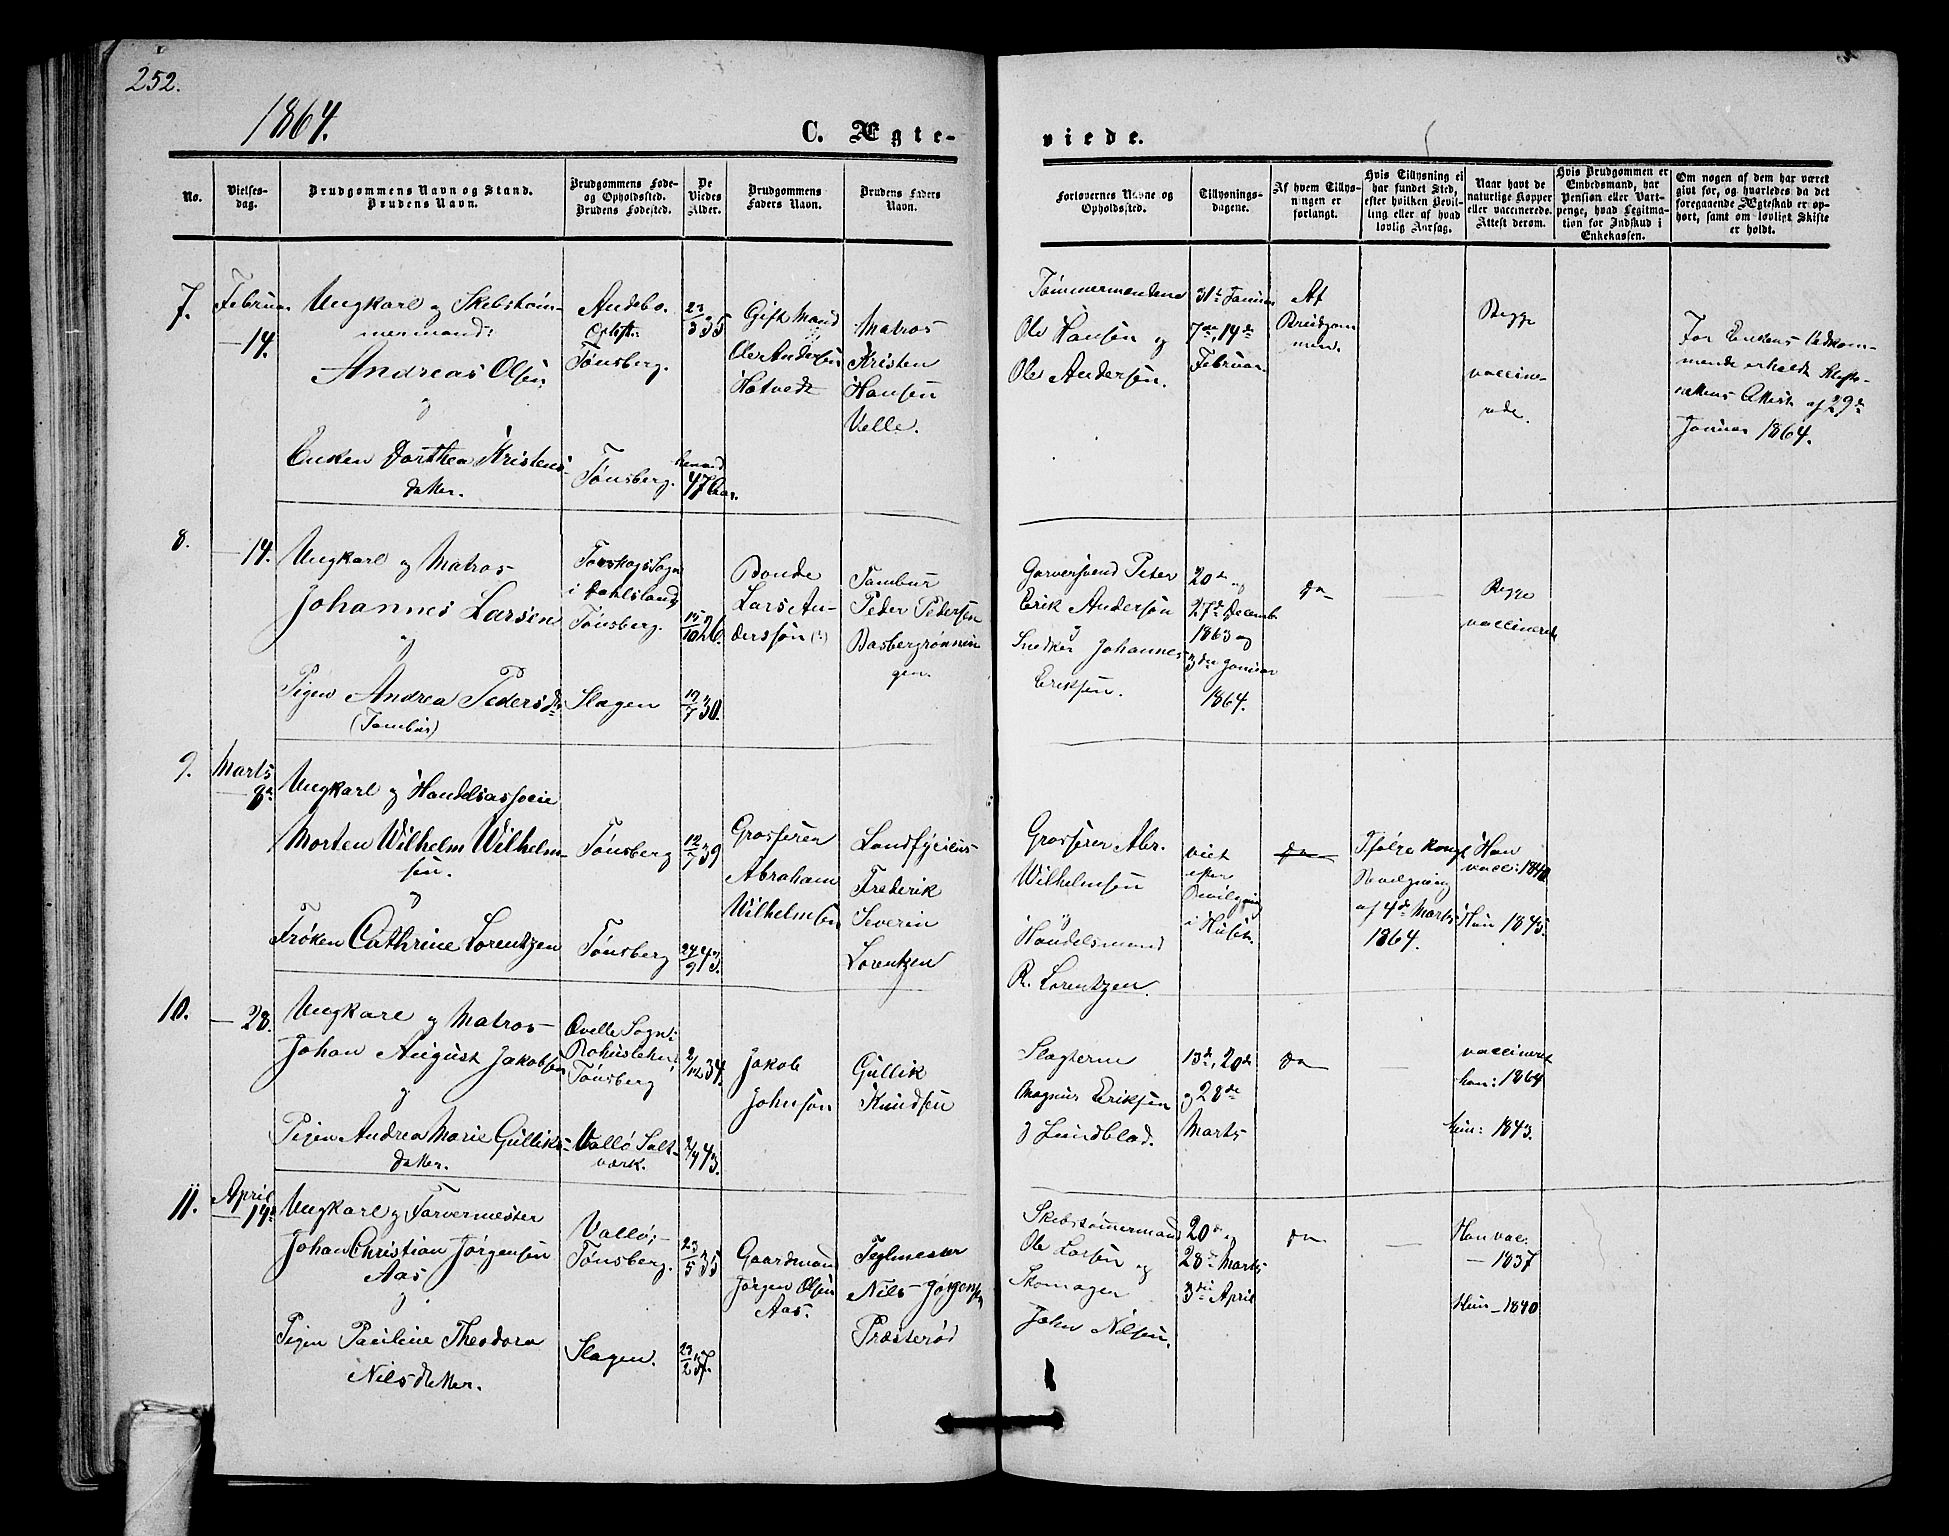 252.
1864.
C. Ægte-
viede.
No.
Vielses-
dag.
Brudgommens Navn og Stand.
Brudens Navn.
Brudgommens Føde-
og Opholdssted.
Brudens Fødested.
De
Viedes
Alder.
Brudgommens
Faders Navn.
Brudens Faders
Navn.
Forlovernes Navne og
Opholdssted.
Tillysnings-
dagene.
Af hvem Tillys-
ningen er
forlangt.
Hvis Tillysning ei
har fundet Sted,
efter hvilken Bevil-
ling eller af hvad
lovlig Aarsag.
Naar havt de
naturlige Kopper
eller vaccinerede.
Attest derom.
Hvis Brudgommen er
Embedsmand, har
Pension eller Vart-
penge, hvad Legitima-
tion for Indskud i
Enkekassen.
Om nogen af dem har været
givt før, og hvorledes da det
foregaaende Ægteskab er op-
hørt, samt om lovligt Skifte
er holdt.
7.
Februar
14.
Ungkarl og Skibstøm-
mermand:
Andreas Olsen
og
Enken Dorthea Kristens-
datter.
Andebo.
Tønsberg.
Tønsberg.
23/3 35
47 Aar.
Gift Mand
Ole Andersen
Hotvedt
Matros
Kristen
Hansen
Velle.
Tømmermændene
Ole Hansen og
Ole Andersen.
31te Januar
7de, 14de
Februar.
Af
Brudgom
men.
Begge
vaccine-
rede.
For Enkens Vedkom-
mende erholdt Skifte-
rettens Attest af 29de
Januar 1864.
8.
14.
Ungkarl og Matros
Johannes Larsen
og
Pigen Andrea Pedersdr
(Tambur)
Torskogs Sogn
i Dahlsland,
Tønsberg.
Slagen
15/10 26.
19/7 30.
Bonde
Lars An-
dersson
Tambur
Peder Pedersen
Basbergrønnin
gen.
Garversvend Peter
Erik Andersøn
og
Snedker Johannes
Eriksen.
20de og
27de Decemb.
1863 og
3die Januar
1864.
do
Begge
vaccinerede
9.
Marts
8de
Ungkarl og Handelsassocie
Morten Wilhelm Wilhelm-
sen.
og
Frøken Cathrine Lorentzen
Tønsberg
Tønsberg
12/7 39
24/9 43.
Grosserer
Abraham
Wilhelmsen
Landfysicus
Frederik
Severin
Lorentzen
Grosserer Abr.
Wilhelmsen
og
Handelsmand
R. Lorentzen.
viet
efter
Bevilgning
i Huset.
do
Ifølge kongl
Bevilgning
af 4de Marts
1864.
Han
vacc: 1840
Hun 1845.
10.
28.
Ungkarl og Matros
Johan August Jakobsen
og
Pigen Andrea Marie Gulliks-
datter.
Qville Sogn i
Bohuslehn;
Tønsberg
Vallø Salt-
værk.
2/12 34.
43.
Jakob
Johnsøn
Gullik
Knudsen
Slagterne
Magnus Eriksen
og Lundblad.
13de, 20de
og 28de
Marts
do
vaccineret
han: 1864
hun: 1843.
11.
April
14de
Ungkarl og Farvermester
Johan Christian Jørgensen
Aas
og
Pigen Pauline Theodora
Nilsdatter.
Vallø;
Tønsberg.
Slagen.
23/5 35
23/2 37.
Gaardmand
Jørgen Olsen
Aas.
Teglmester
Nils Jørgensen
Præsterød
Skibstømmermand
Ole Larsen og
Skomager
John Nilsen.
20de og
28de Marts
3die April
do
Han vac.
— 1837
Hun – 1840